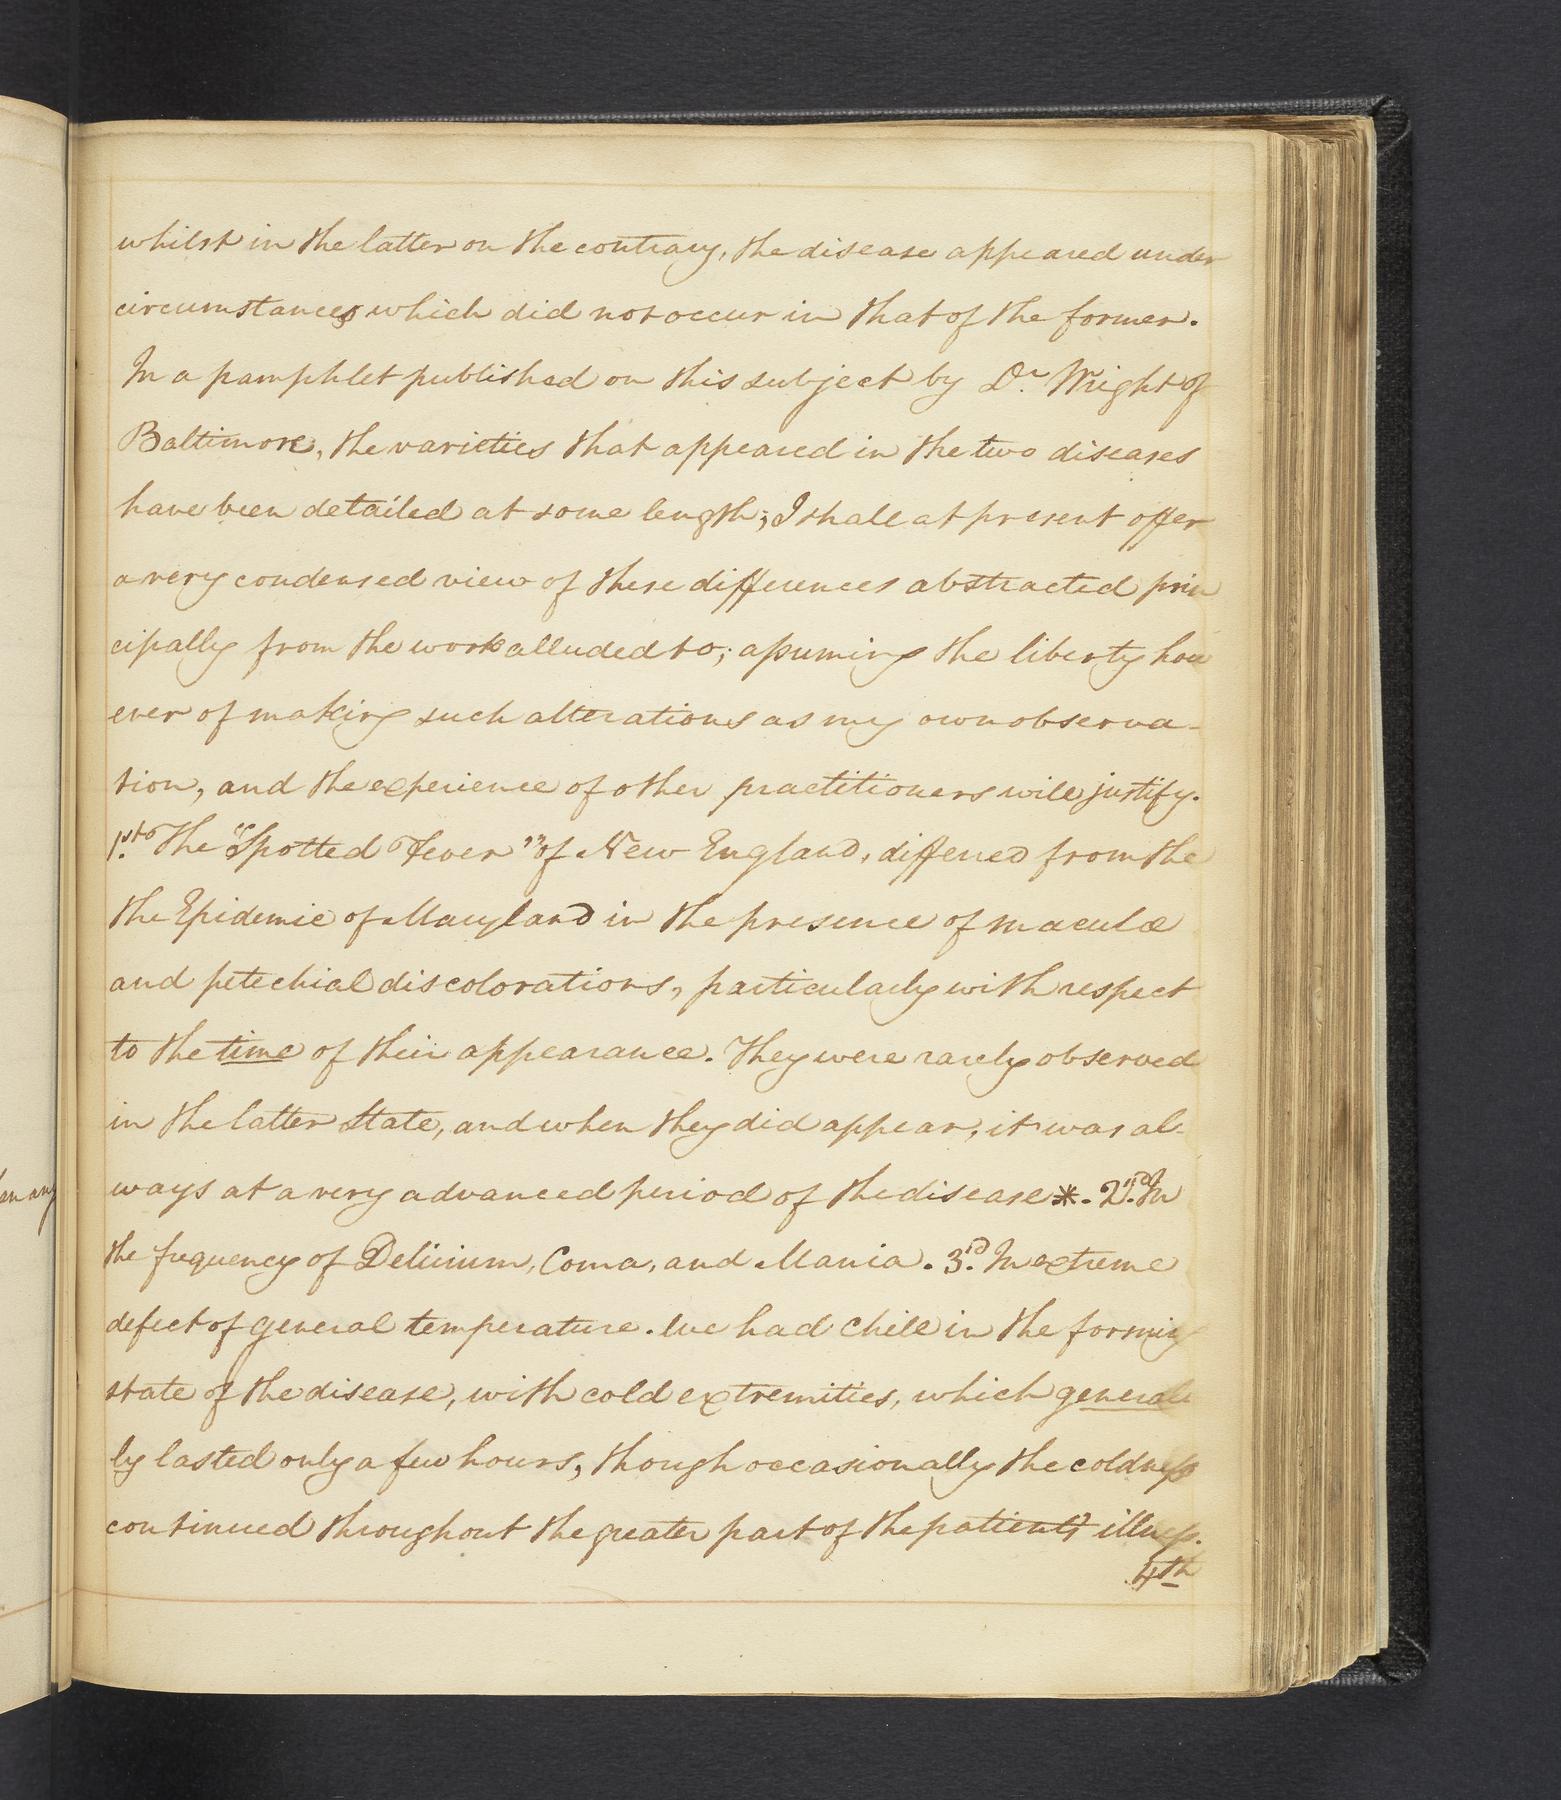 whilst in the latter on the contrary, the disease appeared under
circumstances which did not occur in that of the former.
In a pamphlet published on this subject by Dr. Wright of
Baltimore, the varieties that appeared in the two diseases
have been detailed at some length; I shall at present offer
a very condensed view of these differences abstracted prin
cipally from the work alluded to; assuming the liberty how
ever of making such alterations as my own observa-
tion, and the experience of other practitioners will justify.
1st. The "Spotted Fever" of New England, differed from the
the Epidemic of Maryland in the presence of maculæ
and petechial discolorations, particularly with respect
to the time of their appearance. They were rarely observed
in the latter State, and when they did appear, it was al-
ways at a very advanced period of the disease *. 2nd. In
the frequency of Delirium, Coma, and Mania. 3rd. In extreme
defect of general temperature. We had chill in the forming
state of the disease, with cold extremities, which general
ly lasted only a few hours, though occasionally the coldness
continued throughout the greater part of the patient's illness.
4th